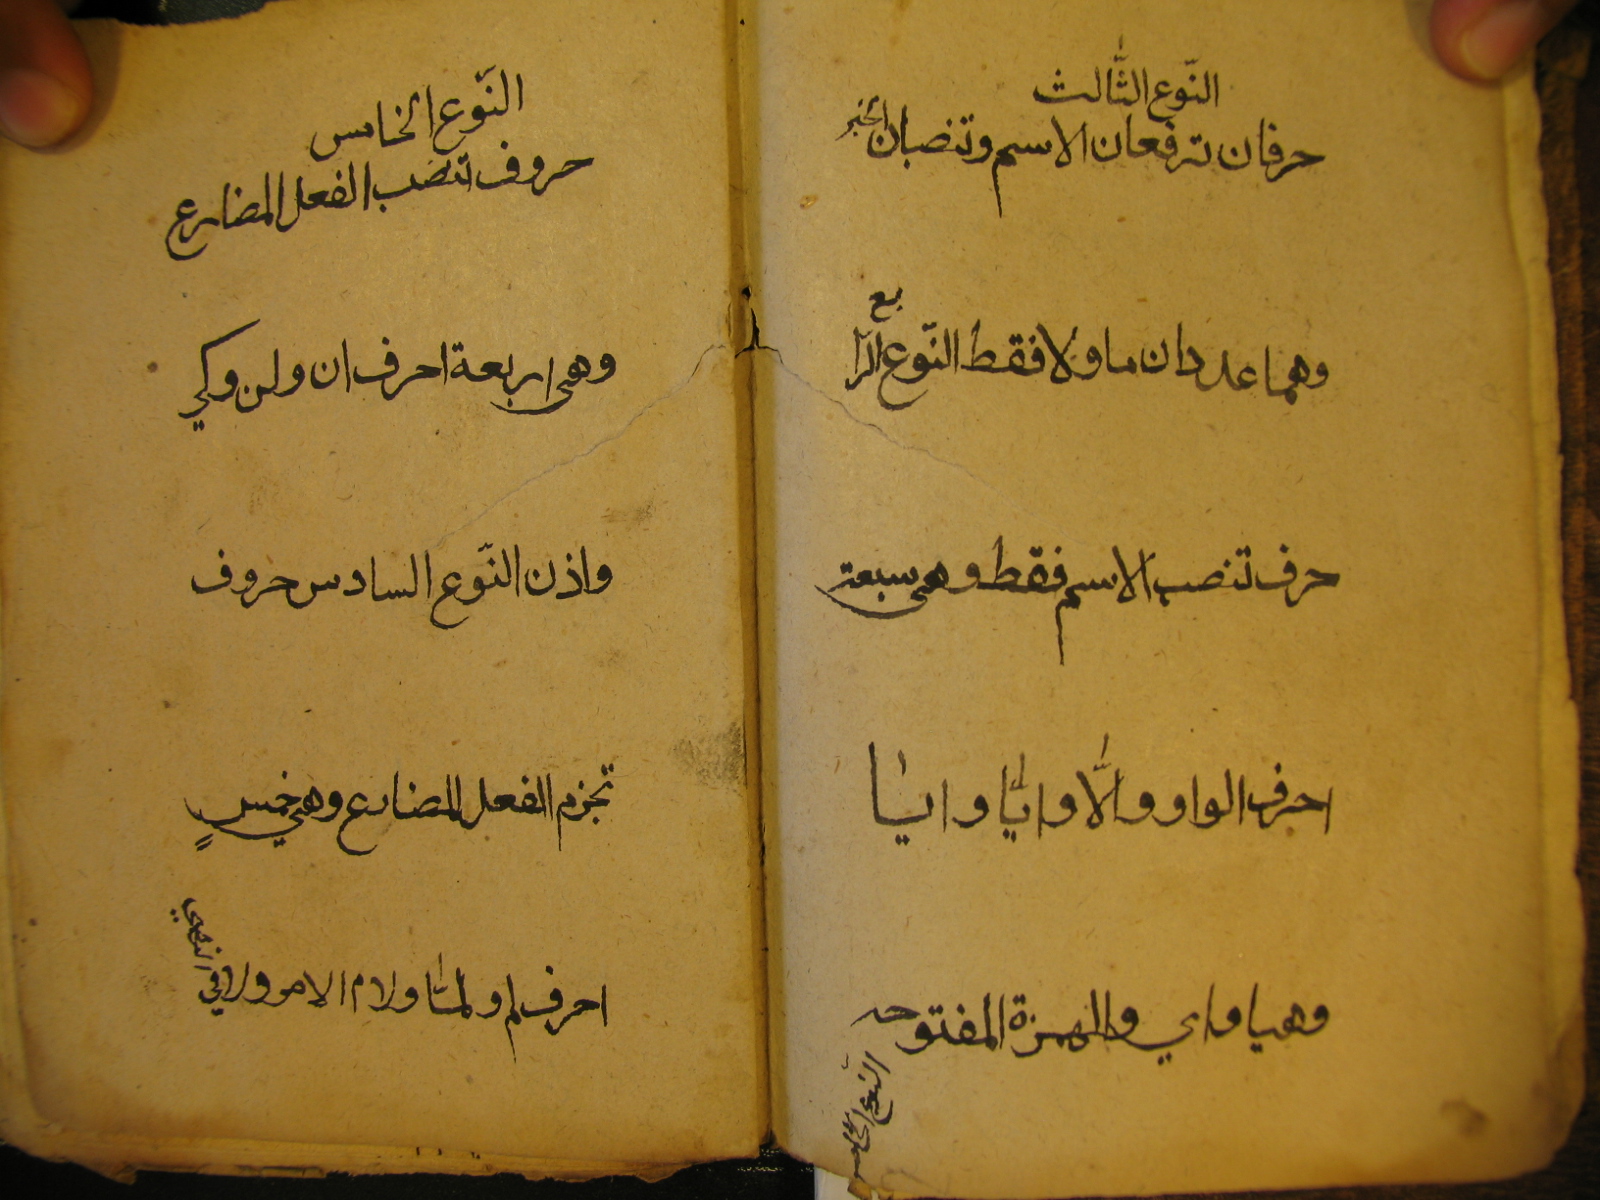 النّوع الثّالث
حرفان ترفعان الاسم وتنصبان الخبر
وهما عددان ما ولا فقط النّوع الرابع
حرف تنصب الاسم فقط وهي سبعة
احرف الواو والّا وايّا وايا
وهيا واي والهمزة المفتوحه
النوع الخامس
النّوع الخامس
حروف تنصب الفعل المضارع
وهي اربعة احرف ان ولن وكي
واذن النّوع السادس حروف
تجزم الفعل المضارع وهي خمسٍ
احرف لم ولمّا ولام الامر ولا في النهي